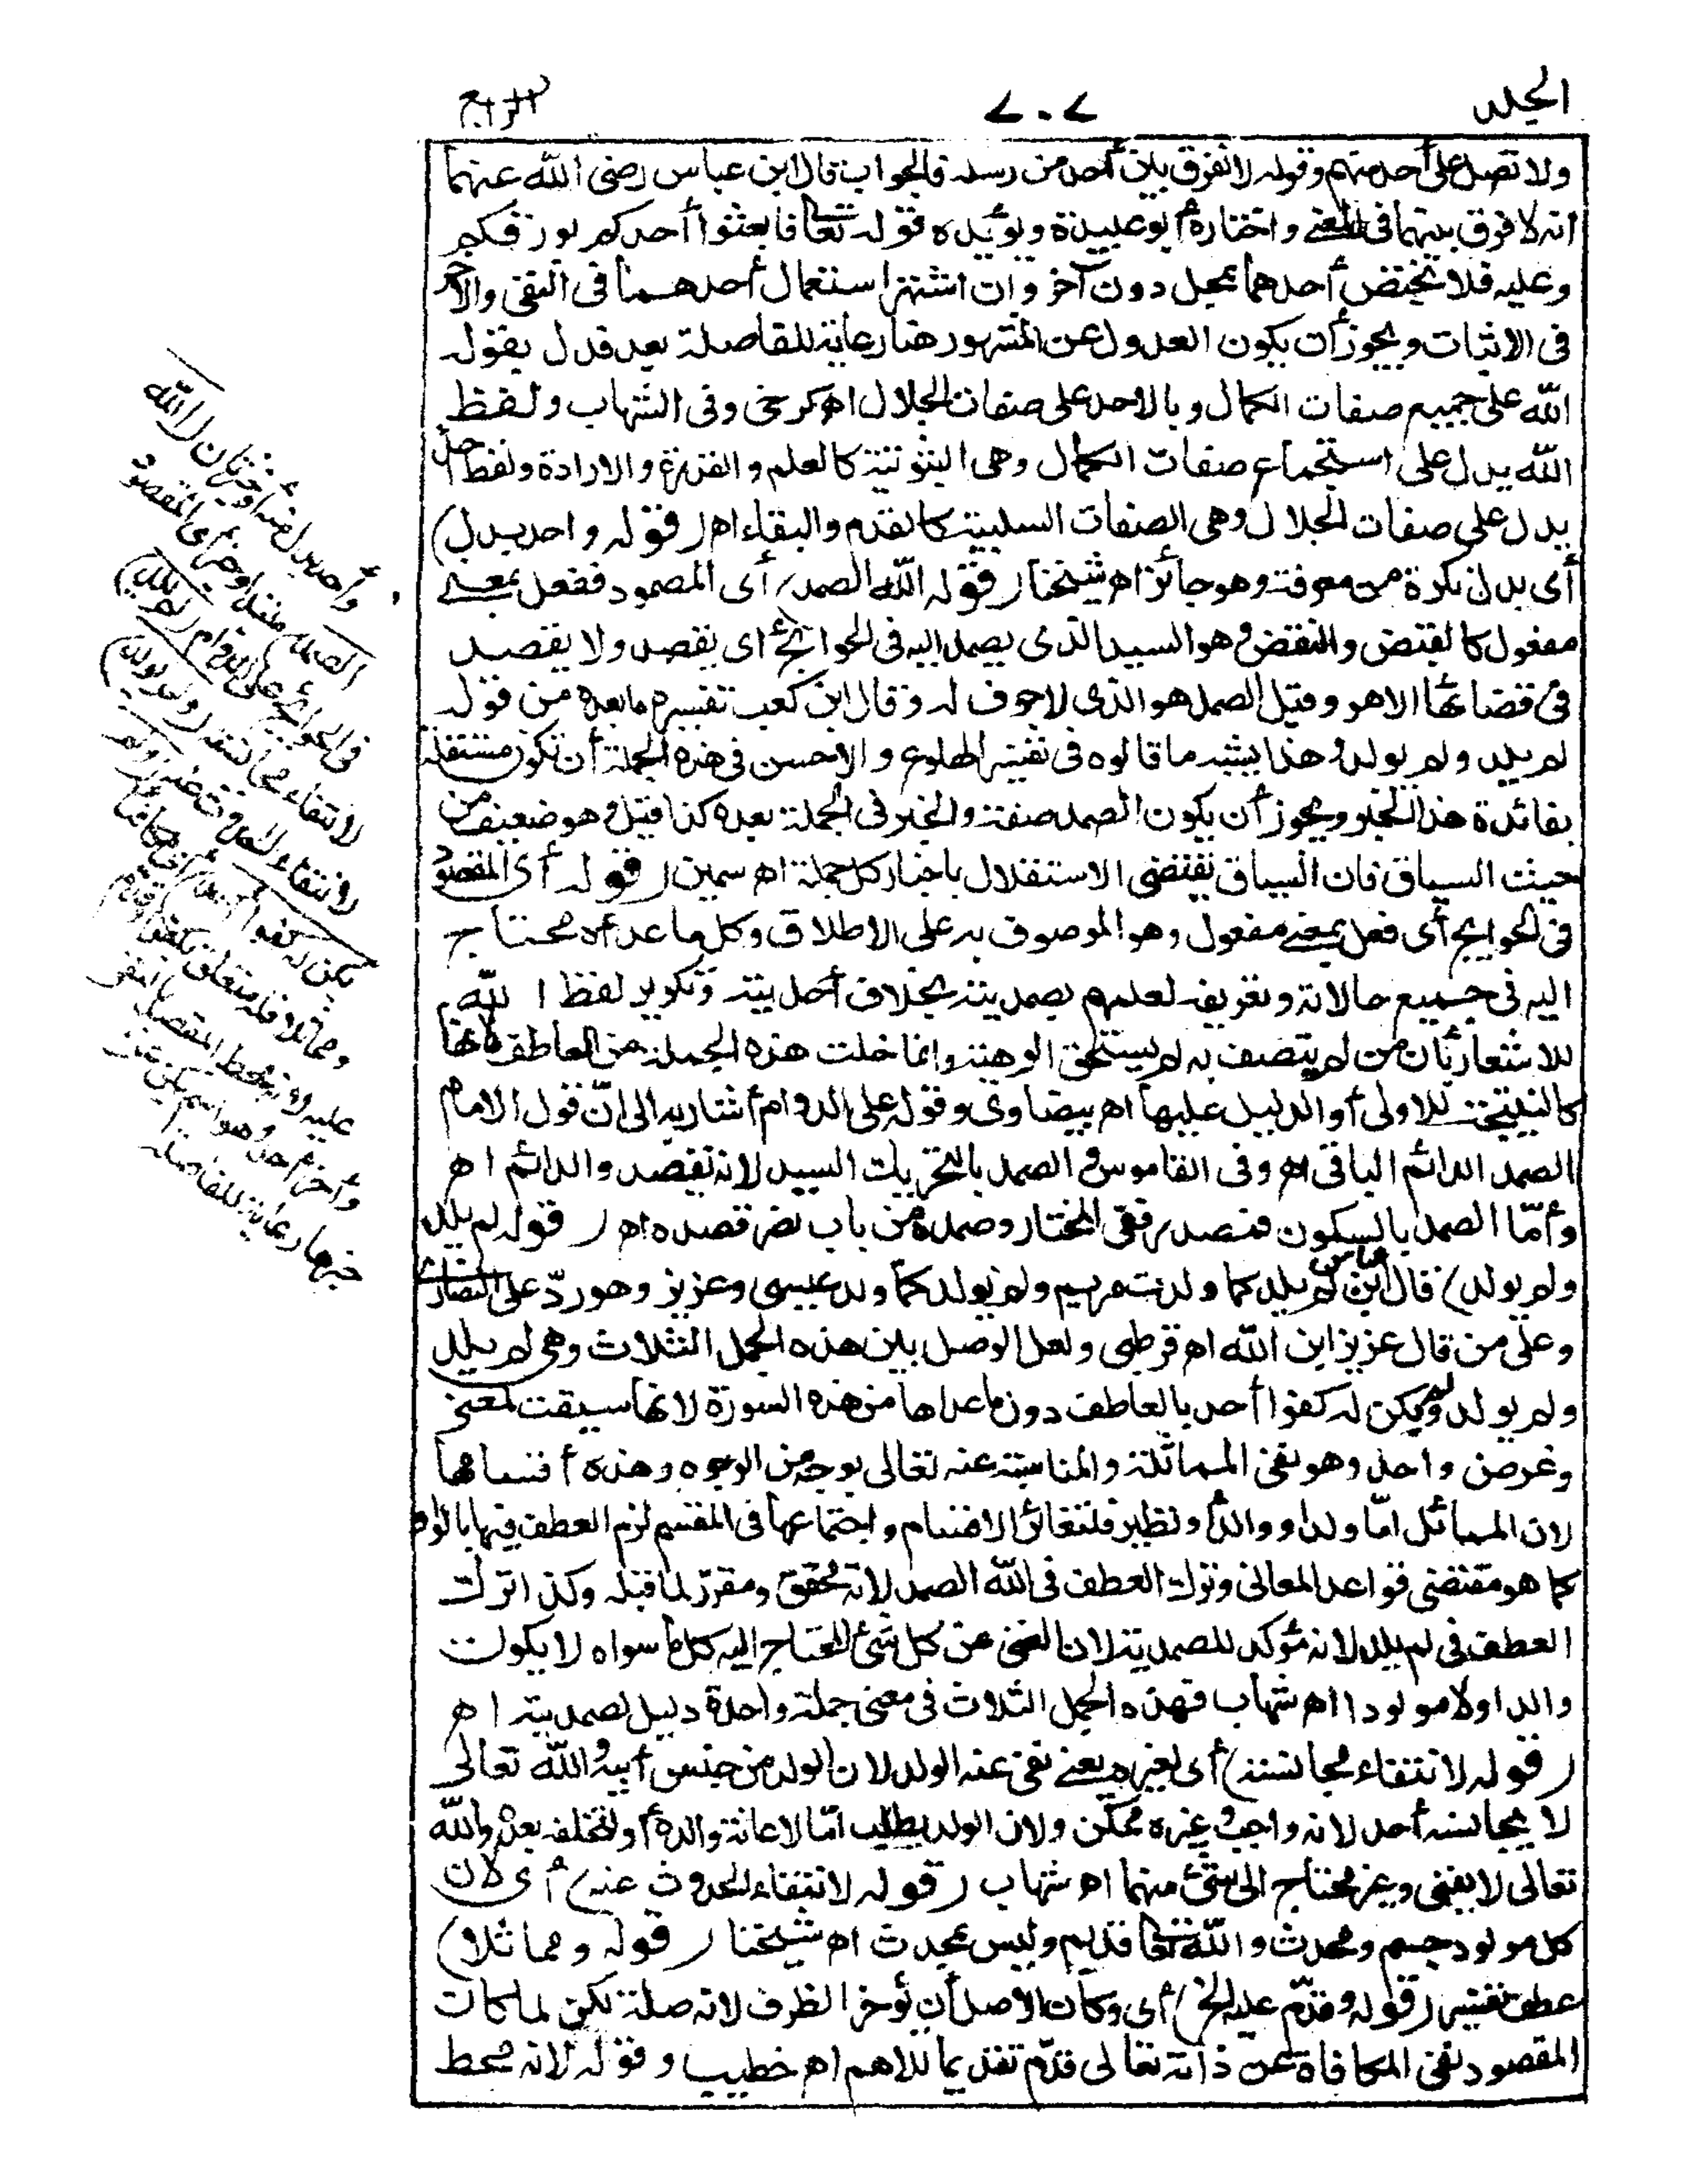 المجلد
٧٠٧
الرابع
ولا تصل على أحد منهم وقوله لا نفرق بين أحد من رسله فالجواب قال ابن عباس رضى الله عنهما
انه لا فرق بينهما فى المعنى واختاره أبو عبيدة ويؤيده قوله تعالى فابعثوا أحدكم بورقكم
وعليه فلا يختص أحدهما بمحل دون آخر وان اشتهر استعمال أحدهما فى النفى والآخر
فى الاثبات ويجوز أن يكون العدول عن المشهور هنا رعاية للفاصلة بعد فدل بقوله
الله على جميع صفات الكمال وبالاحد على صفات الجلال اه كرخى وفى الشهاب ولفظ
الله يدل على استجماع صفات الكمال وهى الثبوتية كالعلم والقدرة والارادة ولفظ أحد
يدل على صفات الجلال وهى الصفات السلبية كالقدم والبقاء اه (قوله واحد بدل)
أى بدل نكرة من معرفة وهو جائز اه شيخنا (قوله الله الصمد) أى المصمود ففعل بمعنى
مفعول كالقبض والنقض وهو السيد الذى يصمد اليه فى الحوائج أى يقصد ولا يقصد
فى قضائها الا هو وقيل الصمد هو الذى لا جوف له وقال ابن كعب تفسيره ما بعده من قوله
لم يلد ولم يولد وهذا يشبه ما قالوه فى تفسير الهلوع والاحسن فى هذه الجملة أن تكون مستقلة
بفائدة هذا الخبر ويجوز أن يكون الصمد صفة والخبر فى الجملة بعده كذا قيل وهو ضعيف من
حيث السياق فان السياق يقتضى الاستقلال باخبار كل جملة اه سمين (قوله أى المقصود
فى الحوائج أى فعل بمعنى مفعول وهو الموصوف به على الاطلاق وكل ما عداه محتاج
اليه فى جميع حالاته وتعريفه لعلمهم بصمديته بخلاف أحديته وتكرير لفظ الله
للاشعار بأن من لم يتصف به لم يستحق الوهية وانما خلت هذه الجملة من العاطف لأنها
كالنتيجة للاولى أو الدليل عليها اه بيضاوى وقوله على الدوام أشار به الى انّ قول الامام
الصمد الدائم الباقى اه وفى القاموس الصمد بالتحريك السيد لانه يقصد والدائم اه
وأمّا الصمد بالسكون فمصدر ففى المختار وصمده من باب نصر قصده اه (قوله لم يلد
ولم يولد) قال ابن عباس لم يلد كما ولدت مريم ولم يولد كما ولد عيسى وعزير وهو ردّ على النصارى
وعلى من قال عزير ابن الله اه قرطبى ولعل الوصل بين هذه الجمل الثلاث وهى لم يلد
ولم يولد ولم يكن له كفوا أحد بالعاطف دون ما عداها من هذه السورة لانها سيقت لمعنى
وغرض واحد وهو نفى المماثلة والمناسبة عنه تعالى بوجه من الوجوه وهذه أقسامها
لان المماثل امّا ولد أو والد أو نظير فلتغائر الاقسام واجتماعها فى المقسم لزم العطف فيها بالواو
كما هو مقتضى قواعد المعانى وترك العطف فى الله الصمد لانه محقق ومقرر لما قبله وكذا ترك
العطف فى لم يلد لانه مؤكد للصمدية لان الغنى عن كل شئ المحتاج اليه كل ما سواه لا يكون
والدا ولا مولودا اه شهاب فهذه الجمل الثلاث فى معنى جملة واحدة دليل لصمديته اه
(قوله لانتفاء مجانسته) أى لغيره يعنى نفى عنه الولد لان الولد من جنس أبيه والله تعالى
لا يجانسه أحد لانه واجب وغيره ممكن ولان الولد يطلب امّا لاعانة والده أو لتخلفه بعده والله
تعالى لا يفنى وغير محتاج الى شئ منهما اه شهاب (قوله لانتفاء الحدوث عنه) أى لان
كل مولود جسم ومحدث والله تعالى قديم وليس بمحدث اه شيخنا (قوله ومماثلا)
عطف تفسير (قوله وقدّم عليه الخ) أى وكان الاصل أن يؤخر الظرف لانه صلة لكن لما كان
المقصود نفى المكافاة عن ذاته تعالى قدّم تقديما للاهم اه خطيب وقوله لانه محط
وأحد بدل منه أو خبر ثان (الله
الصمد) مبتدأ وخبر أى المقصود
فى الحوائج على الدوام (لم يلد)
لانتفاء مجانسته (ولم يولد)
لانتفاء الحدوث عنه (ولم
يكن له كفوا أحد) أى مكافئا
ومماثلا فله متعلق بكفوا وقدم
عليه لانه محط القصد بالنفى
وأخر أحد وهو اسم يكن عن
خبرها رعاية للفاصلة